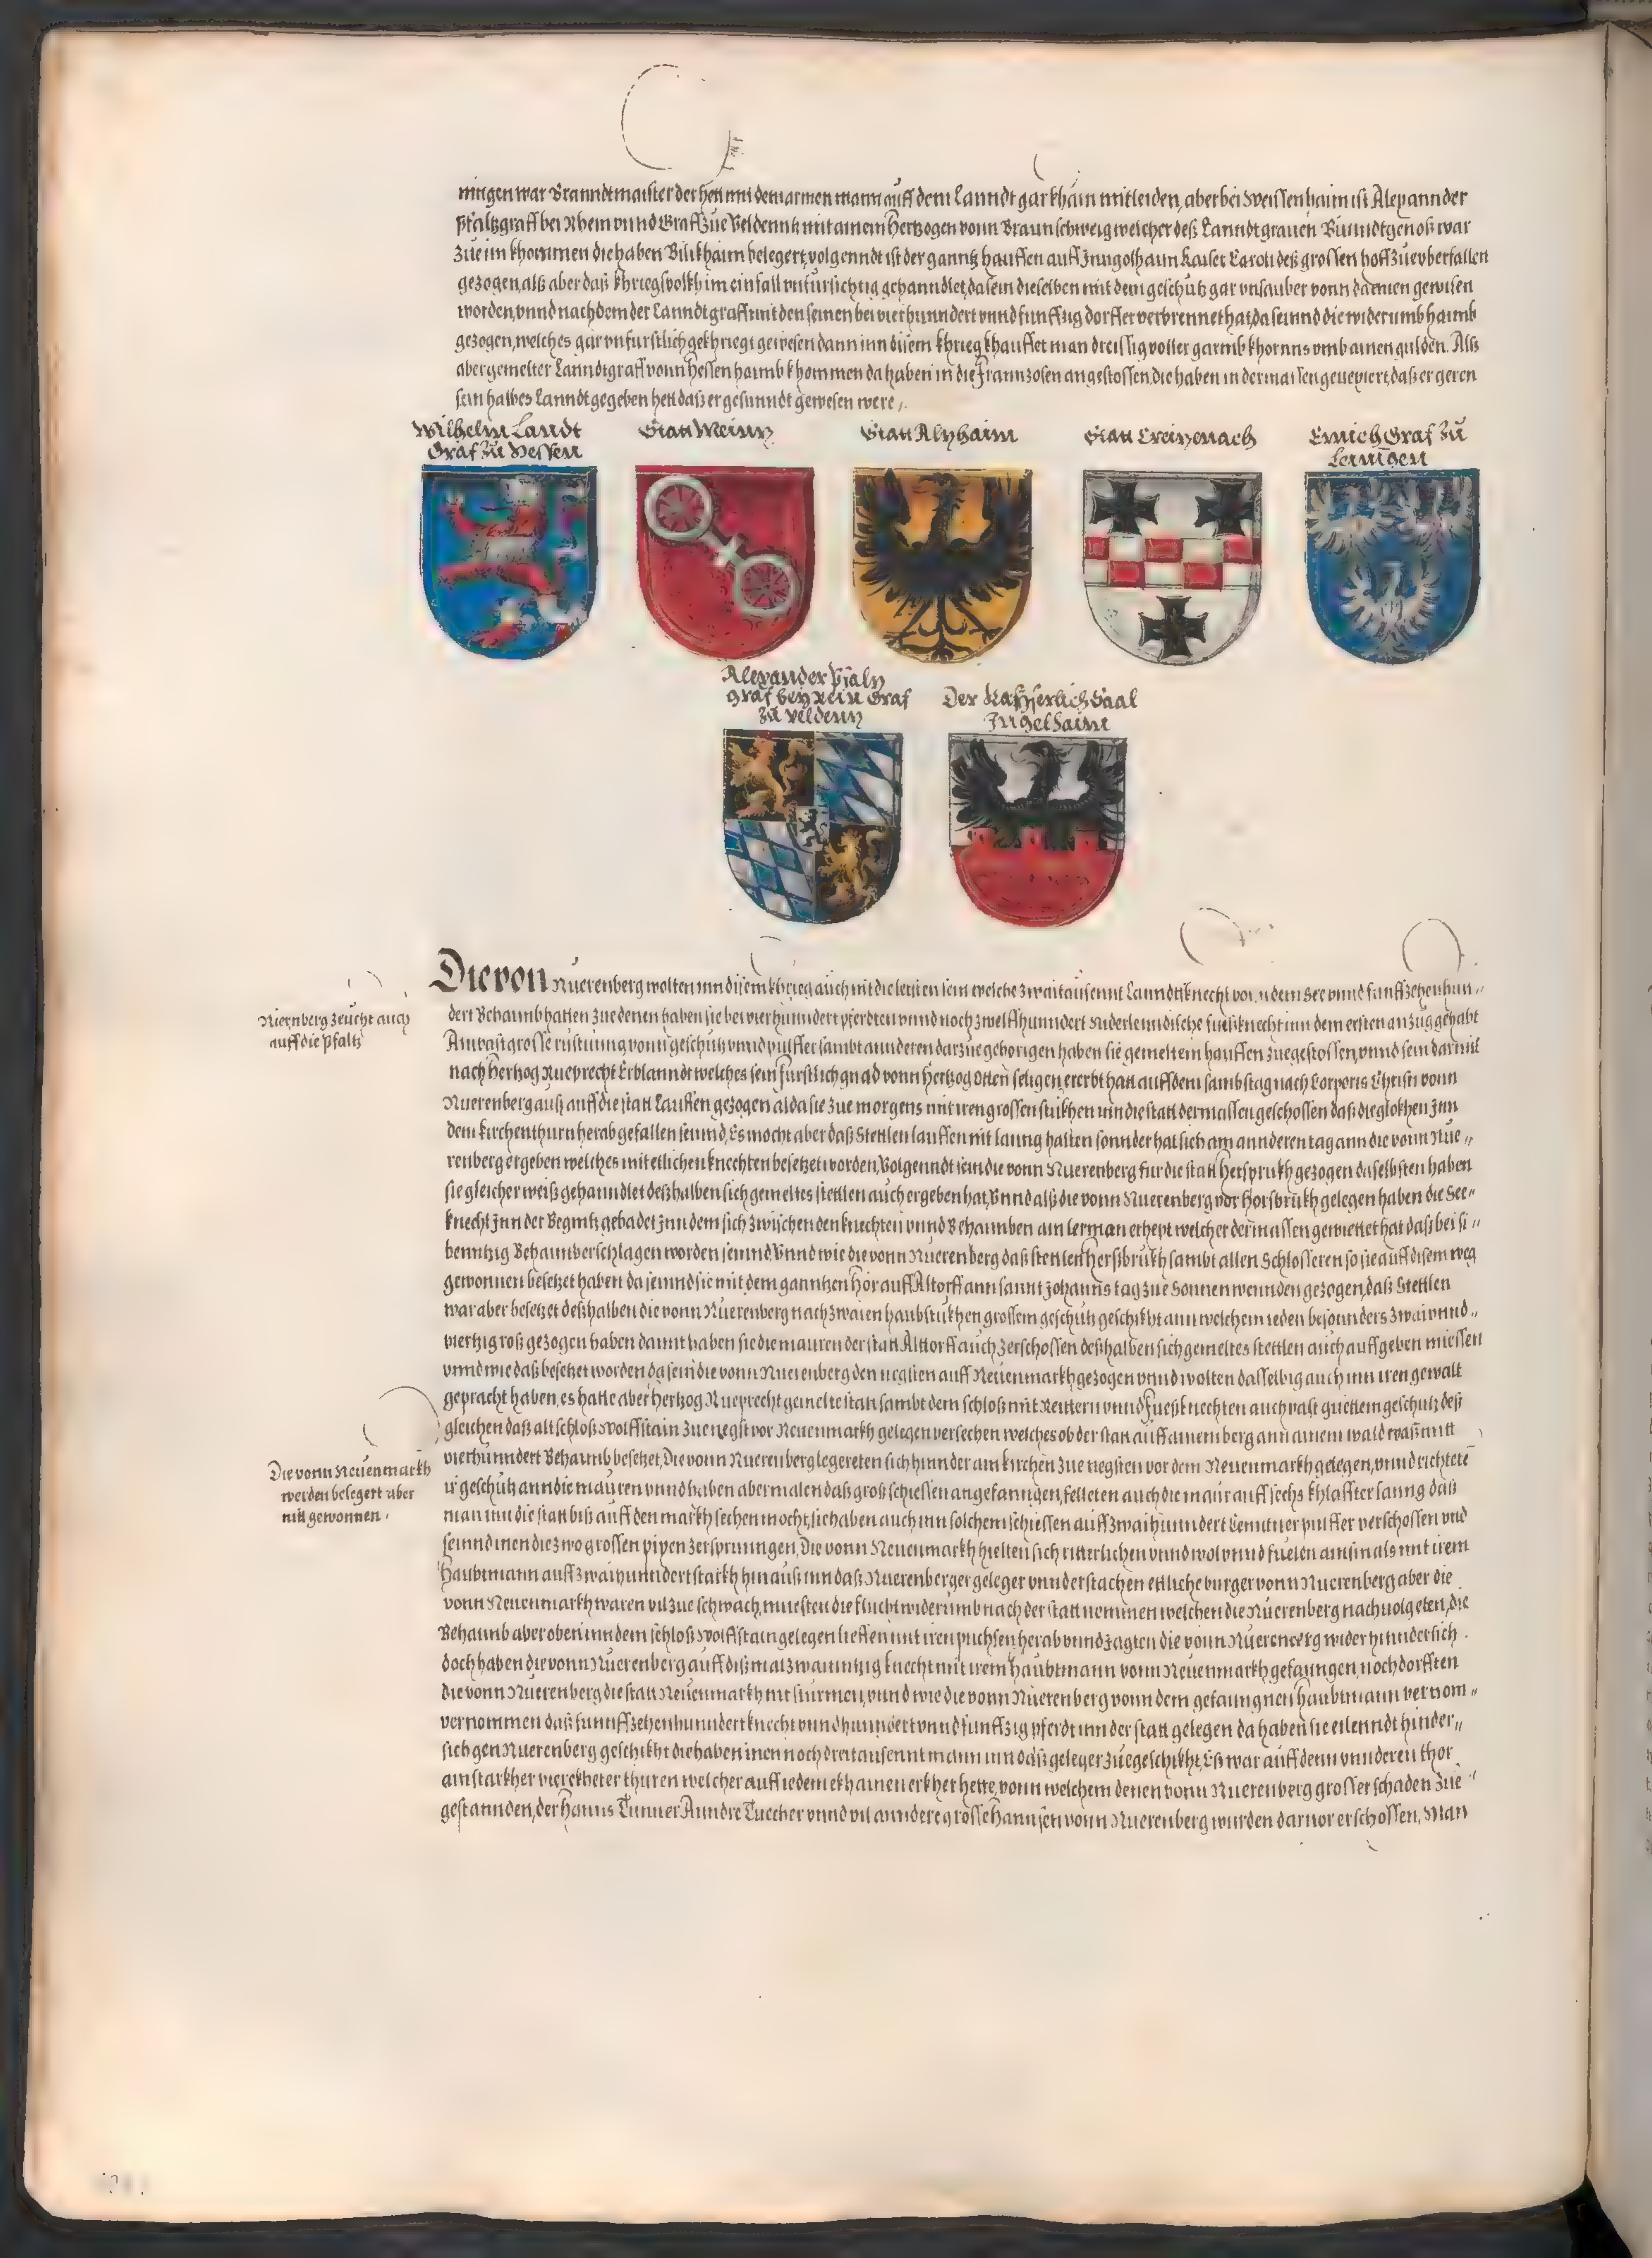 ningen war Branndtmaister der hett mit dem armen mann auff dem Lanndt gar khain mitleiden, aber bei Weissenhaim ist Alexannder
Pfaltzgraff bei Rhein vnnd Graff Zue Veldenntz mit ainem Hertzogen vonn Braunschweig welcher deß Lanndtgrauen Bunndtgenoß war
Zue im khommen die haben Bikhhaim belegert, volgenndt ist der ganntz hauffen auff Inngelhaim Kaiser Caroli deß grossen hoff Zue vberfallen
gezogen, alß aber daß khriegsvolkh im einfall vnfursichtig gehanndlet, da sein dieselben mit dem geschutz gar vnsauber vonn dannen gewisen
worden, vnnd nachdem der Lanndtgraff mit den seinen bei vierhunndert vnnd funffzig dorffer verbrennet hat, da seinnd die widerumb haimb
gezogen, welches gar vnfurstlich gekhriegt gewesen dann inn disem khrieg khauffet man dreissig voller garmb khornns vmb ainen gulden. Alß
aber gemelter Lanndtgraff vonn Hessen haimb khommen da haben in die Frannzosen angestossen, die haben in dermassen geuexiert, daß er geren
sein halbes Lanndt gegeben hett daß er gesunndt gewesen were.
Wilhelm Landt
Graf Zu Hessen
Statt Meinz
Statt Alzhaim
Statt Creizenach
Emich Graf Zu
Leinigen
Alexander Pfalz
Graf bey Rein Graf
Zu Veldenz
Der Kayserlich Saal
Ingelhaim
Die von Nuerenberg wolten inn disem khrieg auch nit die letsten sein welche zwaitausennt Lanndtsknecht vonn dem See vnnd funffzehenhun-
Niernberg Zeucht auch
auff die Pfaltz
dert Behaumb hatten Zue denen haben sie bei vierhunndert pferdten vnnd noch zwelffhunndert Niderlenndische fueßknecht inn dem ersten anzug gehabt
Ain vast grosse rustung vonn geschutz vnnd pulffer sambt annderen darzue gehorigen haben sie gemeltem hauffen Zuegestossen, vnnd sein darmit
nach Hertzog Rueprecht Erblanndt welches sein furstlich gnad vonn Hertzog Otten seligen ererbt hatt auff dem sambstag nach Corporis Christi vonn
Nuerenberg auß auff die statt Lauffen gezogen alda sie Zue morgens mit iren grossen stukhen inn die statt dermassen geschossen daß die glokhen Inn
dem kirchenthurn herab gefallen seinnd, Es mocht aber daß Stettlen lauffen nit lanng halten sonnder hat sich am annderen tag ann die vonn Nue-
renberg ergeben welches mit etlichen knechten besetzet worden, Volgenndt sein die vonn Nuerenberg fur die statt Hersprukh gezogen daselbsten haben
sie gleicher weiß gehanndlet deßhalben sich gemeltes stettlen auch ergeben hat, Vnnd alß die vonn Nuerenberg vor Horsbrukh gelegen haben die See-
knecht Inn der Begnitz gebadet Inn dem sich zwischen den knechten vnnd Behaumben ain lerman erhept welcher dermassen gewerttet hat daß bei si-
bentzig Behaumb erschlagen worden seinnd Vnnd wie die vonn Nuerenberg daß stettlen Herßbrukh sambt allen Schlosseren so sie auff disem weg
gewonnen besetzet haben da seinnd sie mit dem ganntzen Hör auff Altorff ann sannt Johanns tag Zue Sonnenwennden gezogen, daß Stettlen
war aber besetzet deßhalben die vonn Nuerenberg nach zwaien haubtstukhen grossem geschutz geschikht ann welchem ieden besonnders zwai vnnd-
viertzig roß gezogen haben damit haben sie die mauren der statt Alttorff auch zerschossen deßhalben sich gemeltes stettlen auch auffgeben miessen
vnnd wie daß besetzet worden da sein die vonn Nuerenberg den negsten auff Neuenmarkh gezogen vnnd wolten dasselbig auch inn iren gewalt
gepracht haben, es hatte aber Hertzog Rueprecht gemelte statt sambt dem schloß mit Reittern vnnd Fueßknechten auch vast guettem geschutz deß
gleichen daß alt schloß Wolffstain Zue negst vor Neuenmarkh gelegen versechen welches ob der statt auff ainem berg ann ainem wald waß mitt
Die vonn Neuenmarkh
werden belegert aber
nitt gewonnen.
vierhunndert Behaumb besetzet, Die vonn Nuerenberg legereten sich hinnder ain kirchen Zue negsten vor dem Neuenmarkh gelegen, vnnd richteten
ir geschutz ann die mauren vnnd haben abermalen daß groß schiessen angefanngen, felleten auch die maur auff sechs khlaffter lanng daß
man inn die statt biß auff den markh sechen mocht, sie haben auch inn solchem schiessen auff zwaihunndert Centtner pulffer verschossen vnd
seinnd inen die zwo grossen pipen zersprunngen, Die vonn Neuenmarkh hielten sich ritterlichen vnnd wol vnnd fuelen ainsmals mit irem
Haubtmann auff zwaihunndert starkh hinauß inn daß Nuerenberger geleger vnnd erstachen ettliche burger vonn Nuerenberg aber die
vonn Neuenmarkh waren vil zue schwach, muesten die flucht widerumb nach der statt nemmen welchen die Nuerenberg nachuolgeten, die
Behaumb aber oben inn dem schloß Wolffstain gelegen lieffen mit iren puchsen herab vnnd Jagten die vonn Nuerenberg wider hinndersich.
doch haben die vonn Nuerenberg auff diß mal zwainntzig knecht mit irem Haubtmann vonn Neuenmarkh gefanngen, noch dorfften
die vonn Nuerenberg die statt Neuenmarkh nit sturmen, vnnd wie die vonn Nuerenberg vonn dem gefanngnen Haubtmann vernom-
vernommen daß funnffzehenhunndert knecht vnnd hunndert vnnd funffzig pferdt inn der statt gelegen da haben sie eilenndt hinder-
sich gen Nuerenberg geschikht die haben inen noch dreitausennt mann inn daß geleger zuegeschikht, Es war auff dem vnnderen thor
ain starkher vierekheter thuren welcher auff iedem ekh ainen erkher hette, vonn welchem denen vonn Nuerenberg grosser schaden Zue-
gestannden, der Hanns Tunner Anndre Tuccher vnnd vil anndere grosse Hannsen vonn Nuerenberg wurden daruor erschossen, Man